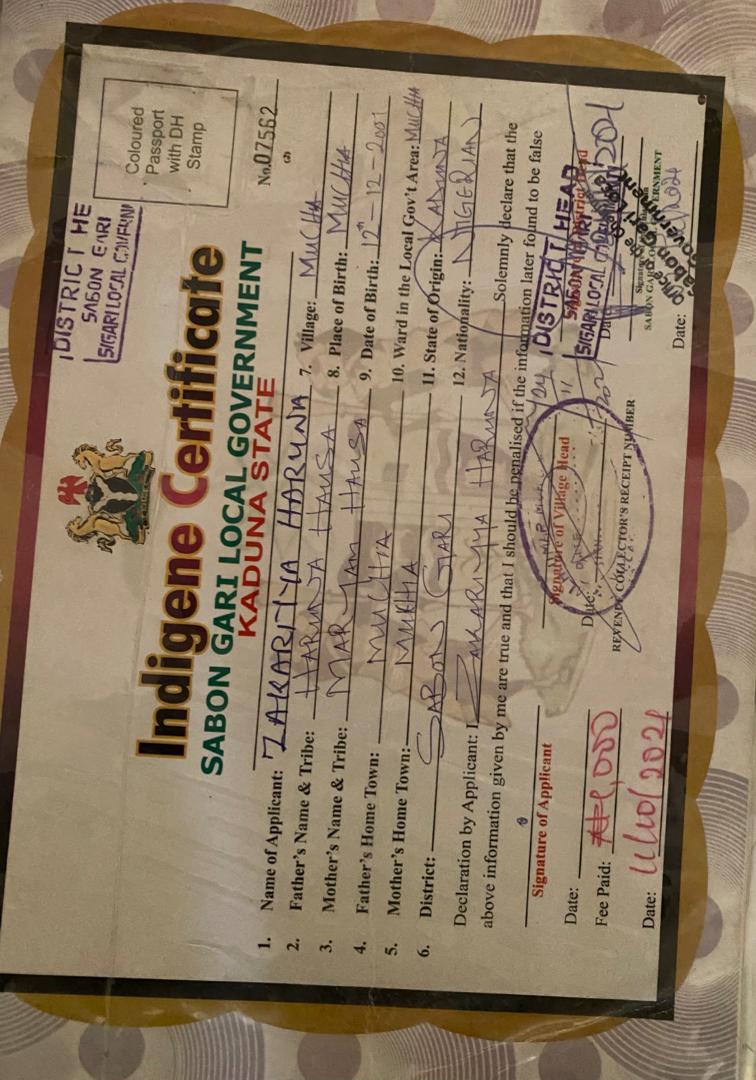 DISTRICT HE
SABON GARI
S/GARI LOCAL GOVERNM
Coloured
Passport
with DH
Stamp
Indigene Certificate
SABON GARI LOCAL GOVERNMENT
KADUNA STATE
No.07562
1. Name of Applicant: ZAKARIYYA HARUNA
2. Father's Name & Tribe: HARUNA HAUSA 7. Village: MUCHIA
3. Mother's Name & Tribe: MARYAM HAUSA 8. Place of Birth: MUCHIA
4. Father's Home Town: MUCHIA 9. Date of Birth: 12th-12-2001
5. Mother's Home Town: MUCHIA 10. Ward in the Local Gov't Area: MUCHIA
6. District: SABON GARI 11. State of Origin: KADUNA
12. Nationality: NIGERIAN
Declaration by Applicant: I ZAKARIYYA HARUNA Solemnly declare that the
above information given by me are true and that I should be penalised if the information later found to be false
Signature of Applicant
Signature of Village Head
DISTRICT HEAD
SABON GARI
S/GARI LOCAL
Date:
Date:
Date
Fee Paid: ₦1,000
REVENUE COLLECTOR'S RECEIPT NUMBER
SABON GARI LOCAL GOVERNMENT
Office of the
Sabon Gari Local
Government
Date: 11/10/2021
Date: